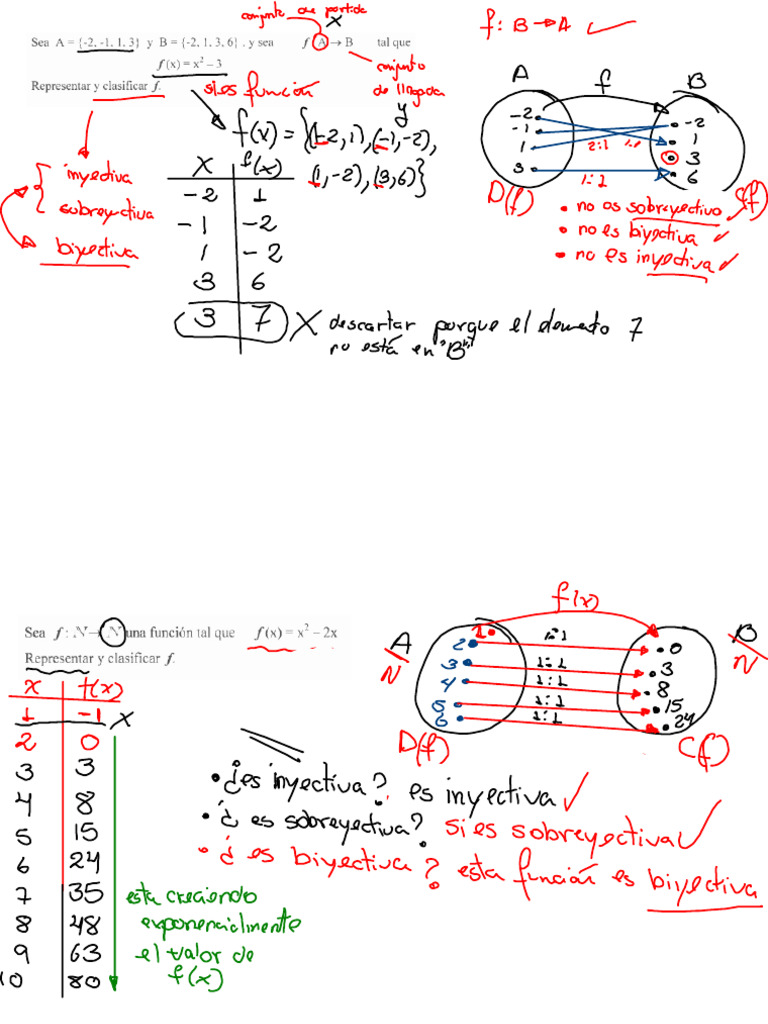 conjunto de partida
x
f: B → A ✓
Sea A = {-2, -1, 1, 3} y B = {-2, 1, 3, 6} . y sea f A → B tal que
f (x) = x² – 3
Representar y clasificar f.
conjunto
de llegada
y
si es función
f(x) = {(-2,1), (-1,-2),
(1,-2), (3,6)}
inyectiva
sobreyectiva
biyectiva
x f(x)
-2 1
-1 -2
1 -2
3 6
3 7 X descartar porque el elemento 7
no está en "B"
A f B
-2 -2
-1 1
1 3
3 6
2:1 1:1
1:1
D(f) C(f)
• no es sobreyectivo ✓
• no es biyectiva ✓
• no es inyectiva ✓
Sea f : N → N una función tal que f (x) = x² – 2x
Representar y clasificar f.
x f(x)
1 -1 X
2 0
3 3
4 8
5 15
6 24
7 35
8 48
9 63
10 80
esta creciendo
exponencialmente
el valor de
f(x)
f(x)
A B
N N
1
2 1:1 0
3 1:1 3
4 1:1 8
5 1:1 15
6 1:1 24
D(f) C(f)
• ¿es inyectiva? es inyectiva ✓
• ¿ es sobreyectiva? si es sobreyectiva ✓
• ¿ es biyectiva ? esta función es biyectiva